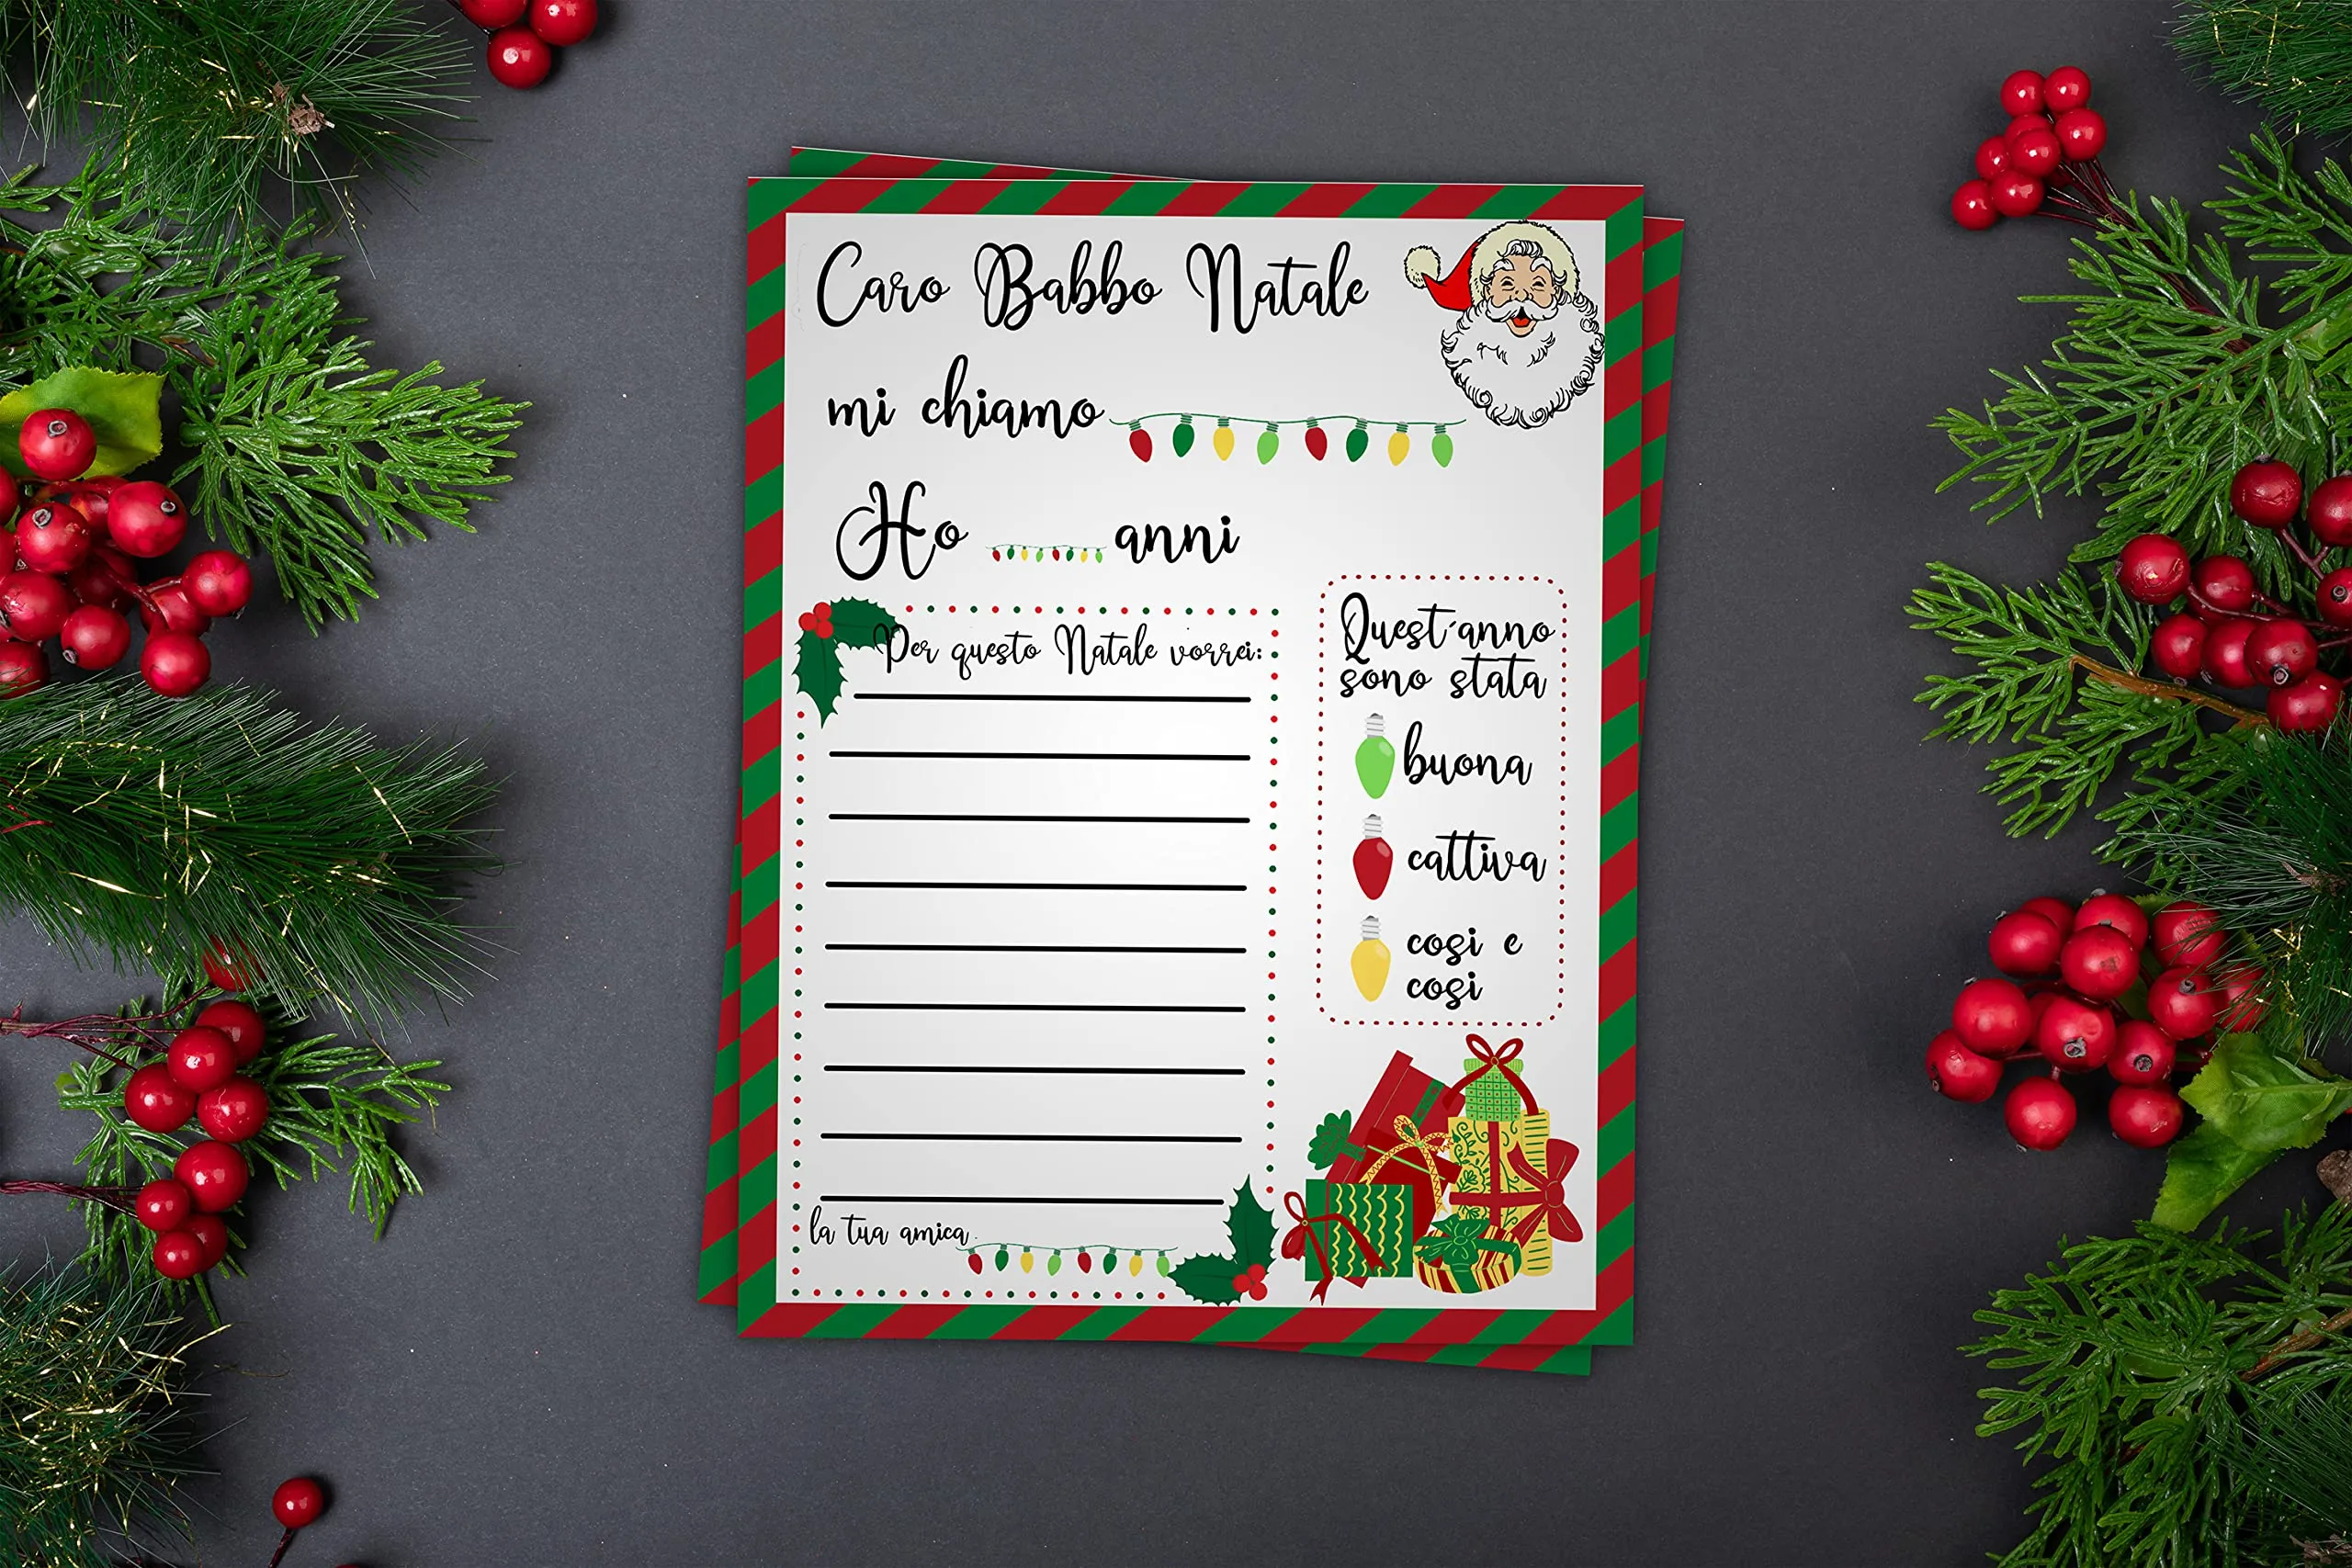 Caro Babbo Natale
mi chiamo
Ho anni
Per questo Natale vorrei:
la tua amica
Quest'anno
sono stata
buona
cattiva
cosi e
cosi